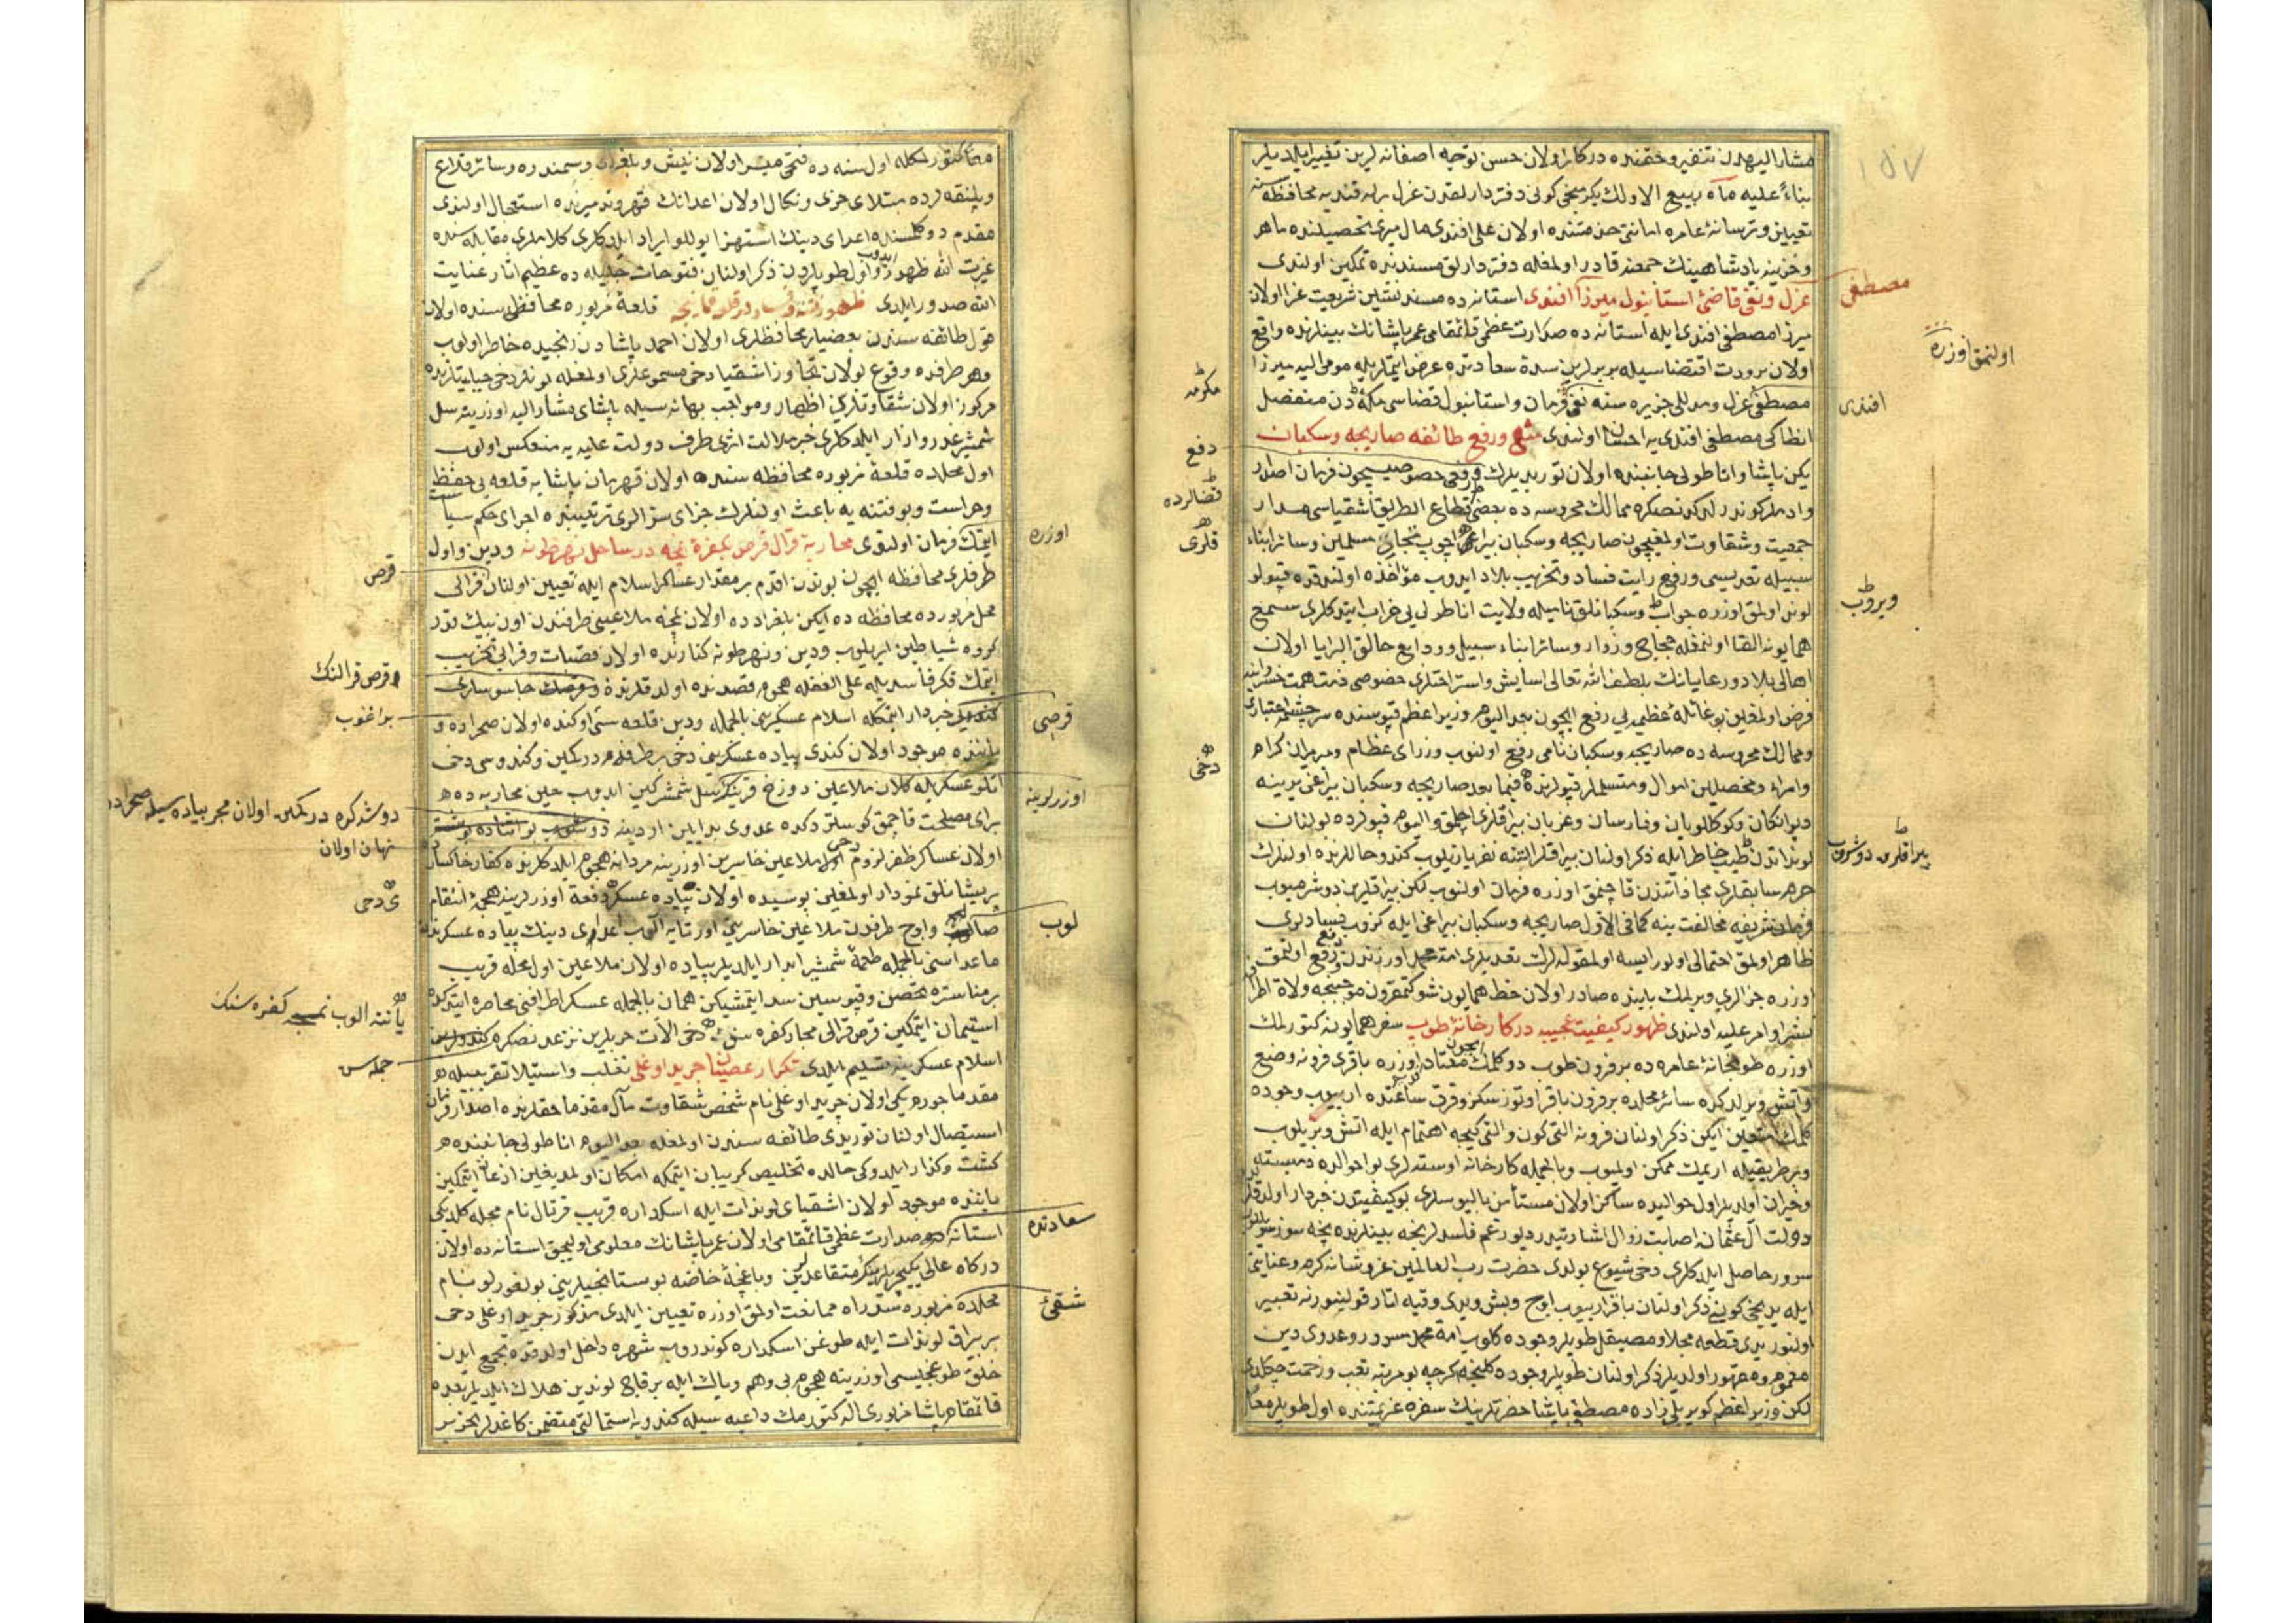 ١٥٧
مشار اليهدن تنفير و حقنده دركار اولان حسن توجه اصفانه لرين تغيير ايلديلر
بناءً عليه ماه ربيع الاولك يكرمنجى كونى دفتردارلقدن عزل برله قنديه محافظه سنه
تعيين و ترسانهٔ عامره امانتى خدمتنده اولان على افندى مال ميرى تحصيلنده ماهر
و خزينهٔ پادشاهينك جمعنه قادر اولمغله دفتردارلق مسندنده تمكين اولندى
عزل و نفى قاضئ استانبول ميرزا افندى استانه ده مسند نشين شريعت غرا اولان
مصطفى
ميرزا مصطفى افندى ايله استانه ده صدارت عظمى قائمقامى عمر پاشانك بينلرنده واقع
اولنمق اوزره
اولان برودت اقتضاسيله بربرلرين سدهٔ سعادتده عرض ايتملريله مومى اليه ميرزا
مكرمه
مصطفى عزل و مدللى جزيره سنه نفى فرمان و استانبول قضاسى مكه دن منفصل
افندى
انطاكى مصطفى افندى يه احسان اولندى منع و رفع طائفه صاريجه و سكبان
دفع
يكن پاشا و اناطولى جانبنده اولان توريديلرك دفعى خصوصيچون فرمان اصدار
و ادملر كوندرلدكدنصكره ممالك محروسه ده بعض قطاع الطريق اشقياسى مدار
قضالرده
جمعيت و شقاوت اولمغيچون صاريجه و سكبان بيراغى اچوب تجار مسلمين و سائر ابناء
قلرى
سبيله تعديسى و رفع رايت فساد و تخريب بلاد ايدوب مؤاخذه اولندقده قپولو
لوند اولمق اوزره جواب و سكبانلق ناميله ولايت اناطولى يى خراب ايتدكلرى سمع
ويروب
همايونه القا اولنمغله حجاج و زوار و سائر ابناء سبيل و ودايع خالق البرايا اولان
اهالى بلاد و رعايانك بلطف الله تعالى اسايش و استراحتلرى خصوصى ذمت همت خسروانه يه
فرض اولمغين بو غائلهٔ عظيمه يى رفع ايچون بعد اليوم وزير اعظم قپوسنده سرچشمه اعتبارى
و ممالك محروسه ده صاريجه و سكبان نامى رفع اولنوب وزراى عظام و ميرميران كرام
دخى
و امراء و محصلين اموال و متسلملر قپولرنده فيما بعد صاريجه و سكبان بيراغى يرينه
ديوانكان و كوكللويان و فارسان و عزبان بيراقلرى اچلمق و اليوم قپولرده بولنان
لونداتدن طيب خاطر ايله ذكر اولنان بيراقلر التنه نفر يازيلوب كندو حاللرنده اولنلرك
بيراقلرن دوشروب
جرم سابقلرى مجازاتندن قاچنمق اوزره فرمان اولنوب لكن بيراقلرين دوشرميوب
فرمان شريفه مخالفت ينه كما فى الاول صاريجه و سكبان بيراغى ايله كزوب فسادلرى
ظاهر اولمق احتمالى اولور ايسه او لمقوله لرك تعديلرى امت محمد اوزرندن رفع اولنمق
اوزره جزالرى ويريلمك بابنده صادر اولان خط همايون شوكتمقرون موجبنجه ولاة اطرافه
نشر اوامر عليه اولندى ظهور كيفيت عجيبه در كارخانهٔ طوب سفر همايونه كتورلمك
ايچون
اوزره طوپخانهٔ عامره ده بر فرون طوب دوكلمك معتاد اوزره باقرى فرونه وضع
و اتش ويرلدكده سائر محلده بر فرون باقر اوتوز سكز و قرق ساعتده اريوب وجوده
كلمك متعين ايكن ذكر اولنان فرونه التى كون و التى كيجه اهتمام ايله اتش ويريلوب
و بر طريقيله اريمك ممكن اولميوب و بالجمله كارخانه اوسته لرى بو احوالده دمبسته
و حيران اولديلر اول حواليده ساكن اولان مستأمن باليوسلرى بو كيفيتدن خبردار اولدقلرنده
دولت ال عثمانه اصابت زوال اشارتيدر ديو زعم فاسدلرنجه بينلرنده نيجه سوزلر سويليوب
سرور حاصل ايلدكلرى دخى شيوع بولدى حضرت رب العالمين عز و شانه كرم و عنايتى
ايله يدنجى كونى ذكر اولنان باقر اريوب اوچ و بش و يدى وقيه اتار قولنبورنه تعبير
اولنور يدى قطعه مجلا و مصيقل طوپلر وجوده كلوب امة محمد مسرور و عدوى دين
مغموم و مقهور اولديلر ذكر اولنان طوپلر وجوده كلنجه كرچه بو مرتبه تعب و زحمت چكلدى
لكن وزير اعظم كوپريلى زاده مصطفى پاشا حضرتلرينك سفره عزيمتنده اول طوپلر معًا
معًا كتورلمكله اول سنه ده فتحى ميسر اولان نيش و بلغراد و سمندره و سائر قلاع
و پلنقه لرده مبتلاى خزى و نكال اولان اعدانك قهر و تدميرنده استعمال اولندى
مقدم دوكلمسنده اعداى دينك استهزا يوللو ايراد ايلدكلرى كلاملرى مقابله سنده
غيرت الله ظهور ايدوب اول طوپلردن ذكر اولنان فتوحات جليله ده عظيم اثار عنايت
الله صدور ايلدى ظهور فتنه و فساد در قلعهٔ قمانيچه قلعهٔ مزبوره محافظه سنده اولان
قول طائفه سندن بعضيلر محافظلرى اولان احمد پاشادن رنجيده خاطر اولوب
و هر طرفده وقوع بولان تجاوز اشقيا دخى مسموعلرى اولمغله بونلر دخى جبلتلرنده
مركوز اولان شقاوتلرين اظهار و مواجب بهانه سيله پاشاى مشار اليه اوزرينه سل
شمشير غدر و ازار ايلدكلرى خبر ملالت اثرى طرف دولت عليه يه منعكس اولوب
اول محلده قلعهٔ مزبوره محافظه سنده اولان قهرمان پاشايه قلعه يى حفظ
و حراست و بو فتنه يه باعث اولنلرك جزاى سزالرى ترتيبنده اجراى حكم سياست
ايتمك فرمان اولندى محاربهٔ قرال قرص بكفرهٔ نمچه در ساحل نهر طونه ودين و اول
اوزره
طرفلرى محافظه ايچون بوندن اقدم بر مقدار عساكر اسلام ايله تعيين اولنان قرالى
قرص
محل مزبورده محافظه ده ايكن بلغرادده اولان نمچه ملاعينى طرفندن اون بيك قدر
كروه شياطين ايريلوب ودين و نهر طونه كنارنده اولان قصبات و قرايى تخريب
ايتمك فكر فاسديله على الغفله هجوم قصدنده اولدقلرنده و قرصك جاسوسلرى
و قرص قرالنك
كندويى خبردار ايتمكله اسلام عسكرينى بالجمله ودين قلعه سى اوكنده اولان صحراده و
قرصى
براغوب
ياننده موجود اولان كندى پياده عسكرينى دخى بر طرفده دركمين و كندوسى دخى
اتلو عسكريله كلان ملاعين دوزخ قرينه كربسل شمشير كين ايدوب حين محاربه ده
اوزرلرينه
براى مصلحت قاچمق كوستردكده عدوى بد ايين اردينه دوشوب بو اثناده
دوشدكده دركمين اولان مجر پياده سيله صحراده
نهان اولان
اولان عساكر ظفر لزوم دخى اول ملاعين خاسرين اوزرينه مردانه هجوم ايلدكلرنده كفار خاكسارده
پريشانلق نمودار اولمغين بوسيده اولان پياده عسكر دفعة اوزرلرينه هجمهٔ انتقام
ى دخى
صالوب و اوچ طرفدن ملاعين خاسرينى اورتايه الوب اعداى دينك پياده عسكرندن
لوب
ماعداسنى بالجمله طعمهٔ شمشير ابدار ايلديلر پياده اولان ملاعين اول محله قريب
بر مناستره تحصن و قپوسين سد ايتمشيكن همان بالجمله عسكر اطرافنى محاصره ايتدكده
يأننه الوب نمچه كفره سنك
استيمان ايتمكين قرص قرالى مجار كفره سنى دخى الات حربلرين نزعدنصكره
جمله سن
اسلام عسكرينه تسليم ايلدى تكرار عصيان جريد اوغلى تغلب و استيلا تقريبيله
مقدما جوره يكى اولان جريد اوغلى نام شخص شقاوت مآل مقدما حقلرنده اصدار فرمان
استيصال اولنان توريدى طائفه سندن اولمغله بعد اليوم اناطولى جانبنده
كشت و كذار ايلدوكى حالده تخليص كريبان ايتمكه امكان اولمديغين اذعان ايتمكين
ياننده موجود اولان اشقياى لوندات ايله اسكداره قريب قرتال نام محله كلدكى
استانه ده صدارت عظمى قائمقامى اولان عمر پاشانك معلومى اوليجق استانه ده اولان
سعادتده
دركاه عالى يكيچريلرينك متقاعدين و باغچهٔ خاصه بوستانجيلرينى بولغورلو نام
محلده مزبوره سد راه ممانعت اولمق اوزره تعيين ايلدى مذكور جريد اوغلى دخى
شقئ
بر بيراق لوندات ايله طوغرى اسكداره كوندروب شهره داخل اولدقده تجمع ايدن
خلق طوغجيسى اوزرينه هجوم بى وهم و باك ايله بر قاچ لوندين هلاك ايلديلر بعده
قائمقام پاشا مزبورى اله كتورمك داعيه سيله كندويه استمالتى متضمن كاغدلر تحرير